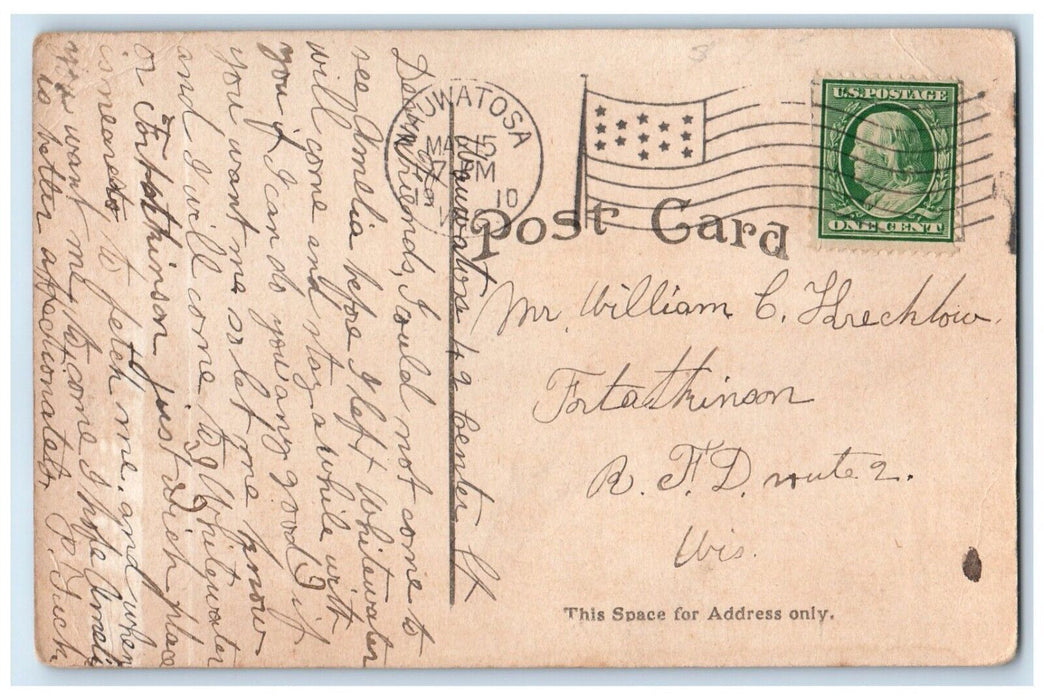 WAUWATOSA
MAR 15
7 PM
10
WIS
U.S. POSTAGE
ONE CENT
Post Card
Mr. William C. Krechlow.
Fortatkinson
R. F. D. route 2.
Wis.
This Space for Address only.
Wauwatosa 49 Center St
Dear Friends, I could not come to
see Amelia before I left Whitewater
will come and stay awhile with
you if I can do you any good if
you want me so let me know
and I will come to Whitewater
or Fortatkinson just wich place
is neares to fetch me. and when
you want me to come I hope Ameli
is better affectionately